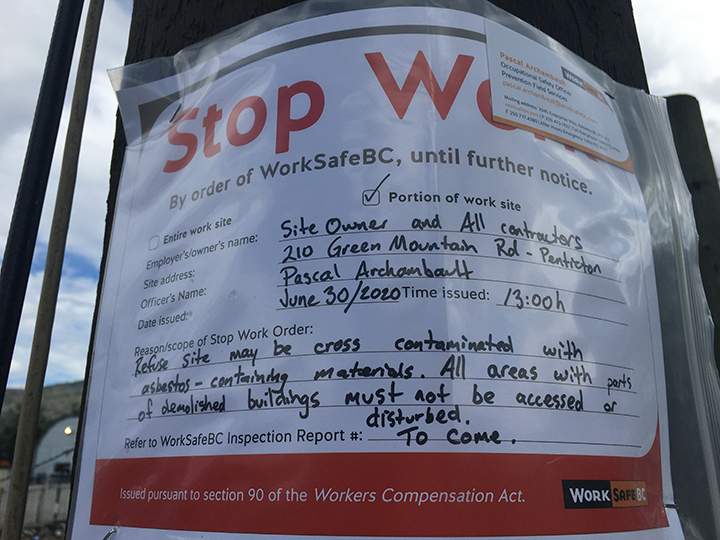 Stop Wo
Pascal Archambault
Occupational Safety Officer
Prevention Field Services
By order of WorkSafeBC, until further notice.
Entire work site
Portion of work site
Employer's/owner's name: Site Owner and All contractors
Site address: 210 Green Mountain Rd - Penticton
Officer's Name: Pascal Archambault
Date issued: June 30/2020 Time issued: 13:00h
Reason/scope of Stop Work Order:
Refuse site may be cross contaminated with
asbestos - containing materials. All areas with parts
of demolished buildings must not be accessed or
disturbed.
Refer to WorkSafeBC Inspection Report #: To Come.
Issued pursuant to section 90 of the Workers Compensation Act.
WORK SAFE BC